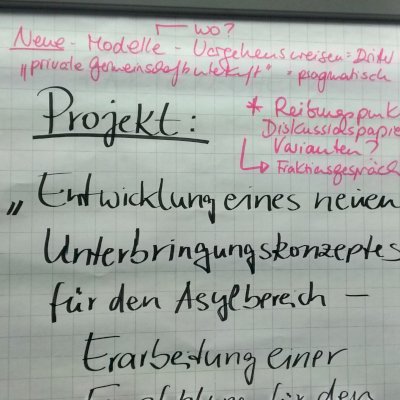 wo?
Neue - Modelle - Vorgehensweisen = Dritter
"private Gemeinschaftunterkunft" = pragmatisch
* Reibungspunk
Diskussionspapie
Varianten?
↳ Fraktionsgespräch
Projekt:
„Entwicklung eines neuen
Unterbringungskonzeptes
für den Asylbereich —
Erarbeitung einer
für den